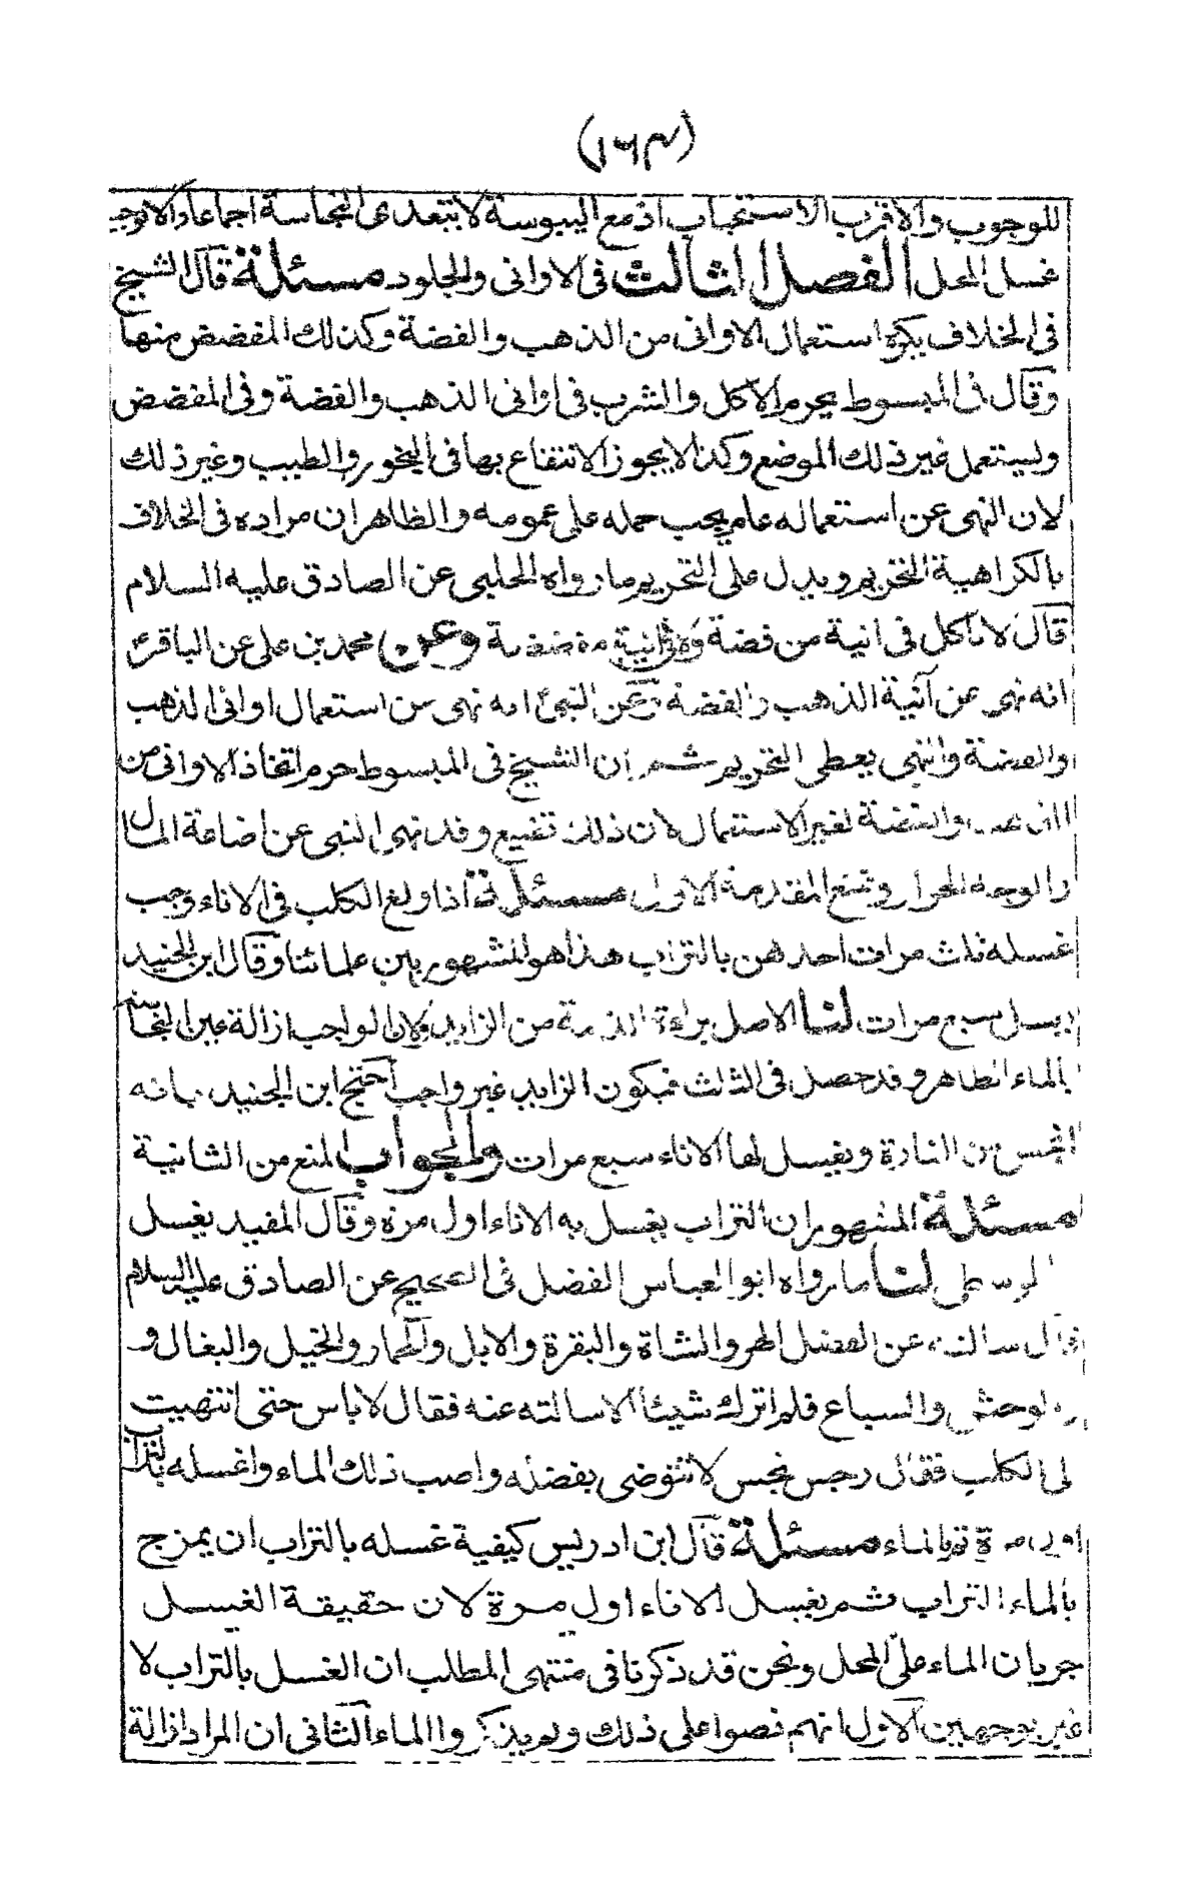 (١٦٣)
للوجوب والاقرب الاستحباب اذ مع اليبوسة لا يتعدى النجاسة اجماعا والا لوجب
غسل المحل الفصل الثالث في الاواني والجلود مسئلة قال الشيخ
في الخلاف يكره استعمال الاواني من الذهب والفضة وكذلك المفضض منها
وقال في المبسوط يحرم الاكل والشرب في اواني الذهب والفضة وفي المفضض
وليستعمل غير ذلك الموضع وكذا لا يجوز الانتفاع بها في البخور والطيب وغير ذلك
لان النهى عن استعماله عام يجب حمله على عمومه والظاهر ان مراده في الخلاف
بالكراهية التحريم ويدل على التحريم ما رواه الحلبي عن الصادق عليه السلام
قال لا تاكل في انية من فضة و في انية مفضضة وعن محمد بن علي عن الباقر
انه نهى عن آنية الذهب والفضة وعن النبي انه نهى عن استعمال اواني الذهب
والفضة والنهي يعطي التحريم ثم ان الشيخ في المبسوط حرم اتخاذ الاواني من
والفضة لغير الاستعمال لان ذلك تضيع وقد نهى النبي عن اضاعة المال
والوجه الجواز ونمنع المقدمة الاولى مسئلة اذا ولغ الكلب في الاناء وجب
غسله ثلث مرات احدهن بالتراب هذا هو المشهور بين علمائنا وقال ابن الجنيد
يغسل سبع مرات لنا الاصل براءة الذمة من الزايد ولان الواجب ازالة عين النجاسة
بالماء الطاهر وقد حصل في الثلث فيكون الزايد غير واجب احتج ابن الجنيد بانه
انجس من الفارة ويغسل لها الاناء سبع مرات والجواب المنع من الثانية
مسئلة المشهور ان التراب يغسل به الاناء اول مرة وقال المفيد يغسل
الوسطى لنا ما رواه ابو العباس الفضل في الصحيح عن الصادق عليه السلام
قال سالته عن الفضل الهر والشاة والبقرة والابل والحمار والخيل والبغال و
الوحش والسباع فلم اترك شيئا الا سالته عنه فقال لا باس حتى انتهيت
الى الكلب فقال رجس نجس لا تتوضى بفضله واصب ذلك الماء واغسله بالتراب
اول مرة ثم بالماء مسئلة قال ابن ادريس كيفية غسله بالتراب ان يمزج
بالماء التراب ثم يغسل الاناء اول مرة لان حقيقة الغسل
جريان الماء على المحل ونحن قد ذكرنا في منتهى المطلب ان الغسل بالتراب لا
غير بوجهين الاول انهم نصوا على ذلك ولم يذكروا الماء الثاني ان المراد ازالة